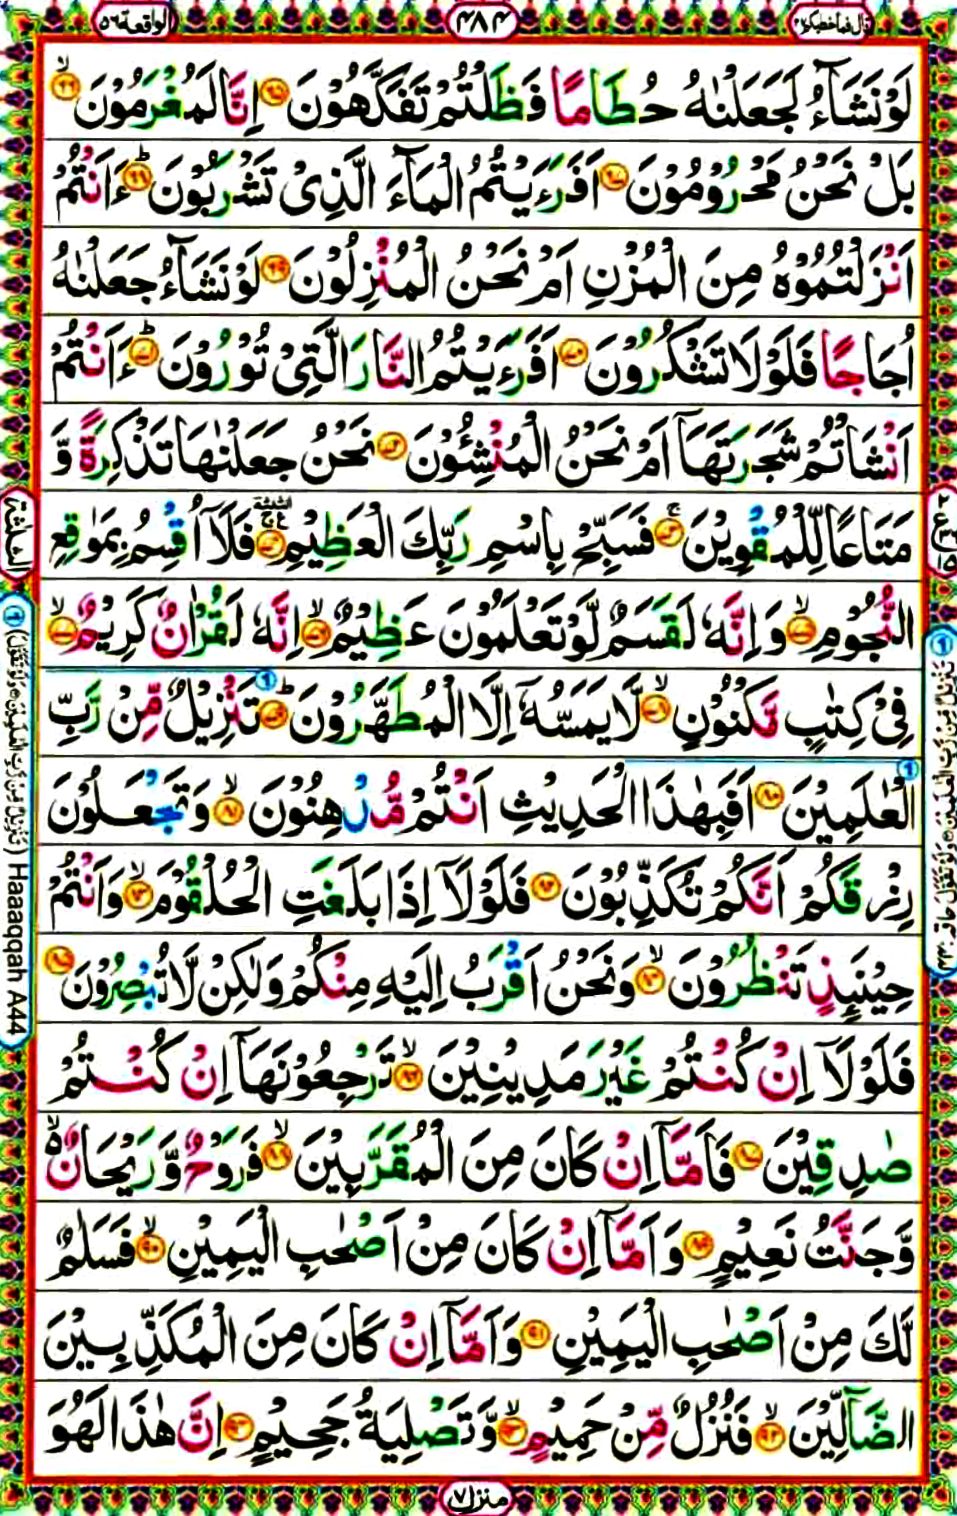 قال فما خطبکم ٢٧
٤٨٤
الواقعة ٥٦
لَوْ نَشَآءُ لَجَعَلْنٰهُ حُطَامًا فَظَلْتُمْ تَفَكَّهُوْنَ ﴿٦٥﴾ اِنَّا لَمُغْرَمُوْنَ ﴿٦٦﴾
بَلْ نَحْنُ مَحْرُوْمُوْنَ ﴿٦٧﴾ اَفَرَءَيْتُمُ الْمَآءَ الَّذِىْ تَشْرَبُوْنَ ﴿٦٨﴾ ءَاَنْتُمْ
اَنْزَلْتُمُوْهُ مِنَ الْمُزْنِ اَمْ نَحْنُ الْمُنْزِلُوْنَ ﴿٦٩﴾ لَوْ نَشَآءُ جَعَلْنٰهُ
اُجَاجًا فَلَوْلَا تَشْكُرُوْنَ ﴿٧٠﴾ اَفَرَءَيْتُمُ النَّارَ الَّتِىْ تُوْرُوْنَ ﴿٧١﴾ ءَاَنْتُمْ
اَنْشَاْتُمْ شَجَرَتَهَآ اَمْ نَحْنُ الْمُنْشِئُوْنَ ﴿٧٢﴾ نَحْنُ جَعَلْنٰهَا تَذْكِرَةً وَّ
مَتَاعًا لِّلْمُقْوِيْنَ ﴿٧٣﴾ فَسَبِّحْ بِاسْمِ رَبِّكَ الْعَظِيْمِ ﴿٧٤﴾ فَلَآ اُقْسِمُ بِمَوٰقِعِ
النُّجُوْمِ ﴿٧٥﴾ وَاِنَّهٗ لَقَسَمٌ لَّوْ تَعْلَمُوْنَ عَظِيْمٌ ﴿٧٦﴾ اِنَّهٗ لَقُرْاٰنٌ كَرِيْمٌ ﴿٧٧﴾
فِىْ كِتٰبٍ مَّكْنُوْنٍ ﴿٧٨﴾ لَّا يَمَسُّهٗٓ اِلَّا الْمُطَهَّرُوْنَ ﴿٧٩﴾ تَنْزِيْلٌ مِّنْ رَّبِّ
الْعٰلَمِيْنَ ﴿٨٠﴾ اَفَبِهٰذَا الْحَدِيْثِ اَنْتُمْ مُّدْهِنُوْنَ ﴿٨١﴾ وَتَجْعَلُوْنَ
رِزْقَكُمْ اَنَّكُمْ تُكَذِّبُوْنَ ﴿٨٢﴾ فَلَوْلَآ اِذَا بَلَغَتِ الْحُلْقُوْمَ ﴿٨٣﴾ وَاَنْتُمْ
حِيْنَئِذٍ تَنْظُرُوْنَ ﴿٨٤﴾ وَنَحْنُ اَقْرَبُ اِلَيْهِ مِنْكُمْ وَلٰكِنْ لَّا تُبْصِرُوْنَ ﴿٨٥﴾
فَلَوْلَآ اِنْ كُنْتُمْ غَيْرَ مَدِيْنِيْنَ ﴿٨٦﴾ تَرْجِعُوْنَهَآ اِنْ كُنْتُمْ
صٰدِقِيْنَ ﴿٨٧﴾ فَاَمَّآ اِنْ كَانَ مِنَ الْمُقَرَّبِيْنَ ﴿٨٨﴾ فَرَوْحٌ وَّرَيْحَانٌ
وَّجَنَّتُ نَعِيْمٍ ﴿٨٩﴾ وَاَمَّآ اِنْ كَانَ مِنْ اَصْحٰبِ الْيَمِيْنِ ﴿٩٠﴾ فَسَلٰمٌ
لَّكَ مِنْ اَصْحٰبِ الْيَمِيْنِ ﴿٩١﴾ وَاَمَّآ اِنْ كَانَ مِنَ الْمُكَذِّبِيْنَ
الضَّآلِّيْنَ ﴿٩٢﴾ فَنُزُلٌ مِّنْ حَمِيْمٍ ﴿٩٣﴾ وَّتَصْلِيَةُ جَحِيْمٍ ﴿٩٤﴾ اِنَّ هٰذَا لَهُوَ
منزل ٧
الثلثة
Haaaaqqah A44